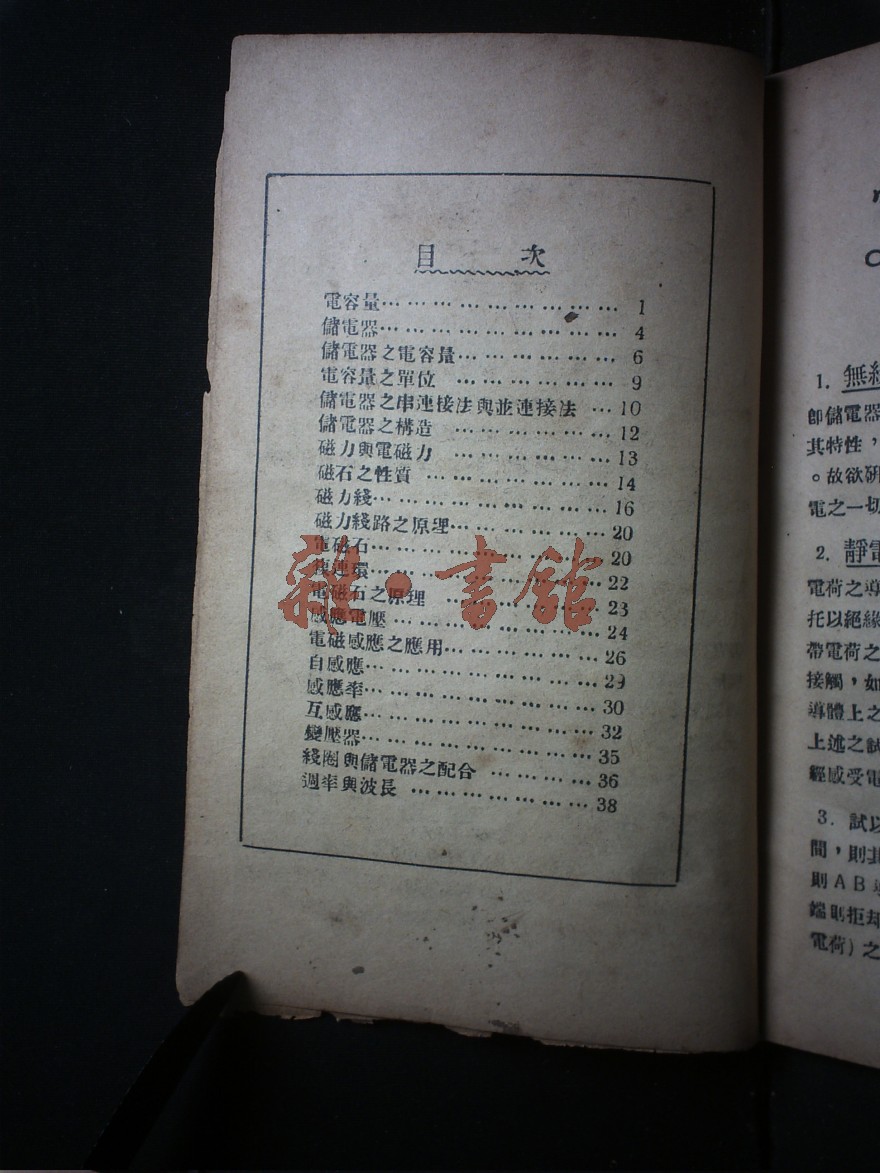 目 次
電容量…………………………… 1
儲電器…………………………… 4
儲電器之電容量………………… 6
電容量之單位 ………………… 9
儲電器之串連接法與並連接法 …10
儲電器之構造 …………………12
磁力與電磁力 …………………13
磁石之性質 ……………………14
磁力綫……………………………16
磁力綫路之原理…………………20
電磁石……………………………20
連環……………………………22
電磁石之原理 …………………23
感應電壓…………………………24
電磁感應之應用…………………26
自感應……………………………29
感應率……………………………30
互感應……………………………32
變壓器……………………………35
綫圈與儲電器之配合 …………36
週率與波長 ……………………38
雜·書館
1. 無
即儲電器
其特性,
。故欲研
電之一切
2. 靜電
電荷之導
托以絕緣
帶電荷之
接觸,如
導體上之
上述之試
經感受電
3. 試以
間,則其
則AB導
端則拒却
電荷)之